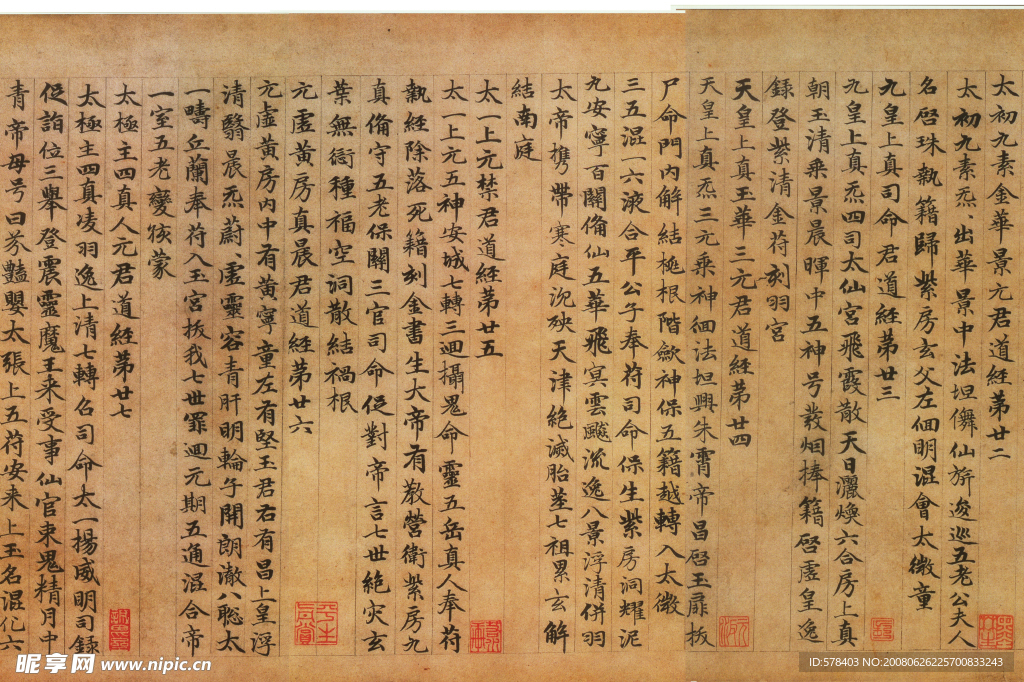 太初九素金華景元君道經第廿二
太初九素炁、出華景中法坦儛仙旂逡巡五老公夫人
名啓珠執籍歸紫房玄父左佪明混會太微童
九皇上真司命君道經第廿三
九皇上真炁四司太仙宮飛霞散天日灑煥六合房上真
朝玉清乘景晨暉中五神号裝烟捧籍啓虛皇逸
錄登紫清金苻刻羽宮
天皇上真玉華三元君道經第廿四
天皇上真炁三元乘神佪法坦興朱霄帝昌啓玉扉扳
尸命門內解結掋根階歛神保五籍越轉入太微
三五混一六液合平公子奉苻司命保生紫房洞耀泥
九安寧百關俻仙五華飛冥雲飈流逸八景浮清併羽
太帝攜帶寒庭沉殃天津絕滅胎莖七祖累玄解
結南庭
太一上元禁君道經第廿五
太一上元五神安城七轉三迴攝鬼命靈五岳真人奉苻
執經除落死籍刻金書生大帝有教營衛紫房九
真俻守五老保關三官司命促對帝言七世絕灾玄
葉無愆種福空洞散結禍根
元虛黃房真晨君道經第廿六
元虛黃房內中有黃寧童左有堅玉君右有昌上皇浮
清翳晨炁蔚、虛靈容青肝明輪午開朗澈八聡太
一疇丘蘭奉苻入玉宮扳我七世罪迴元期五通混合帝
一室五老變孩蒙
太極主四真人元君道經第廿七
太極主四真凌羽逸上清七轉召司命太一揚威明司録
促詣位三舉登震靈魔王来受事仙官束鬼精月中
青帝母号曰芬豔嬰太張上五苻安来上玉名混化六
昵享网 www.nipic.cn
ID:578403 NO:20080626225700833243